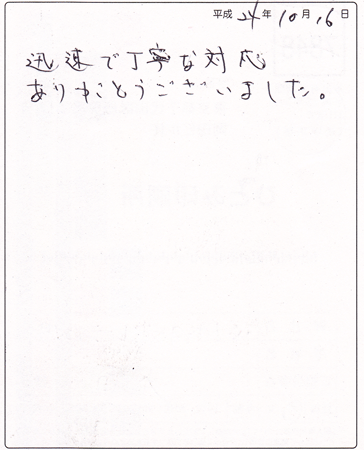 平成 24 年 10 月 16 日
迅速で丁寧な対応
ありがとうございました。